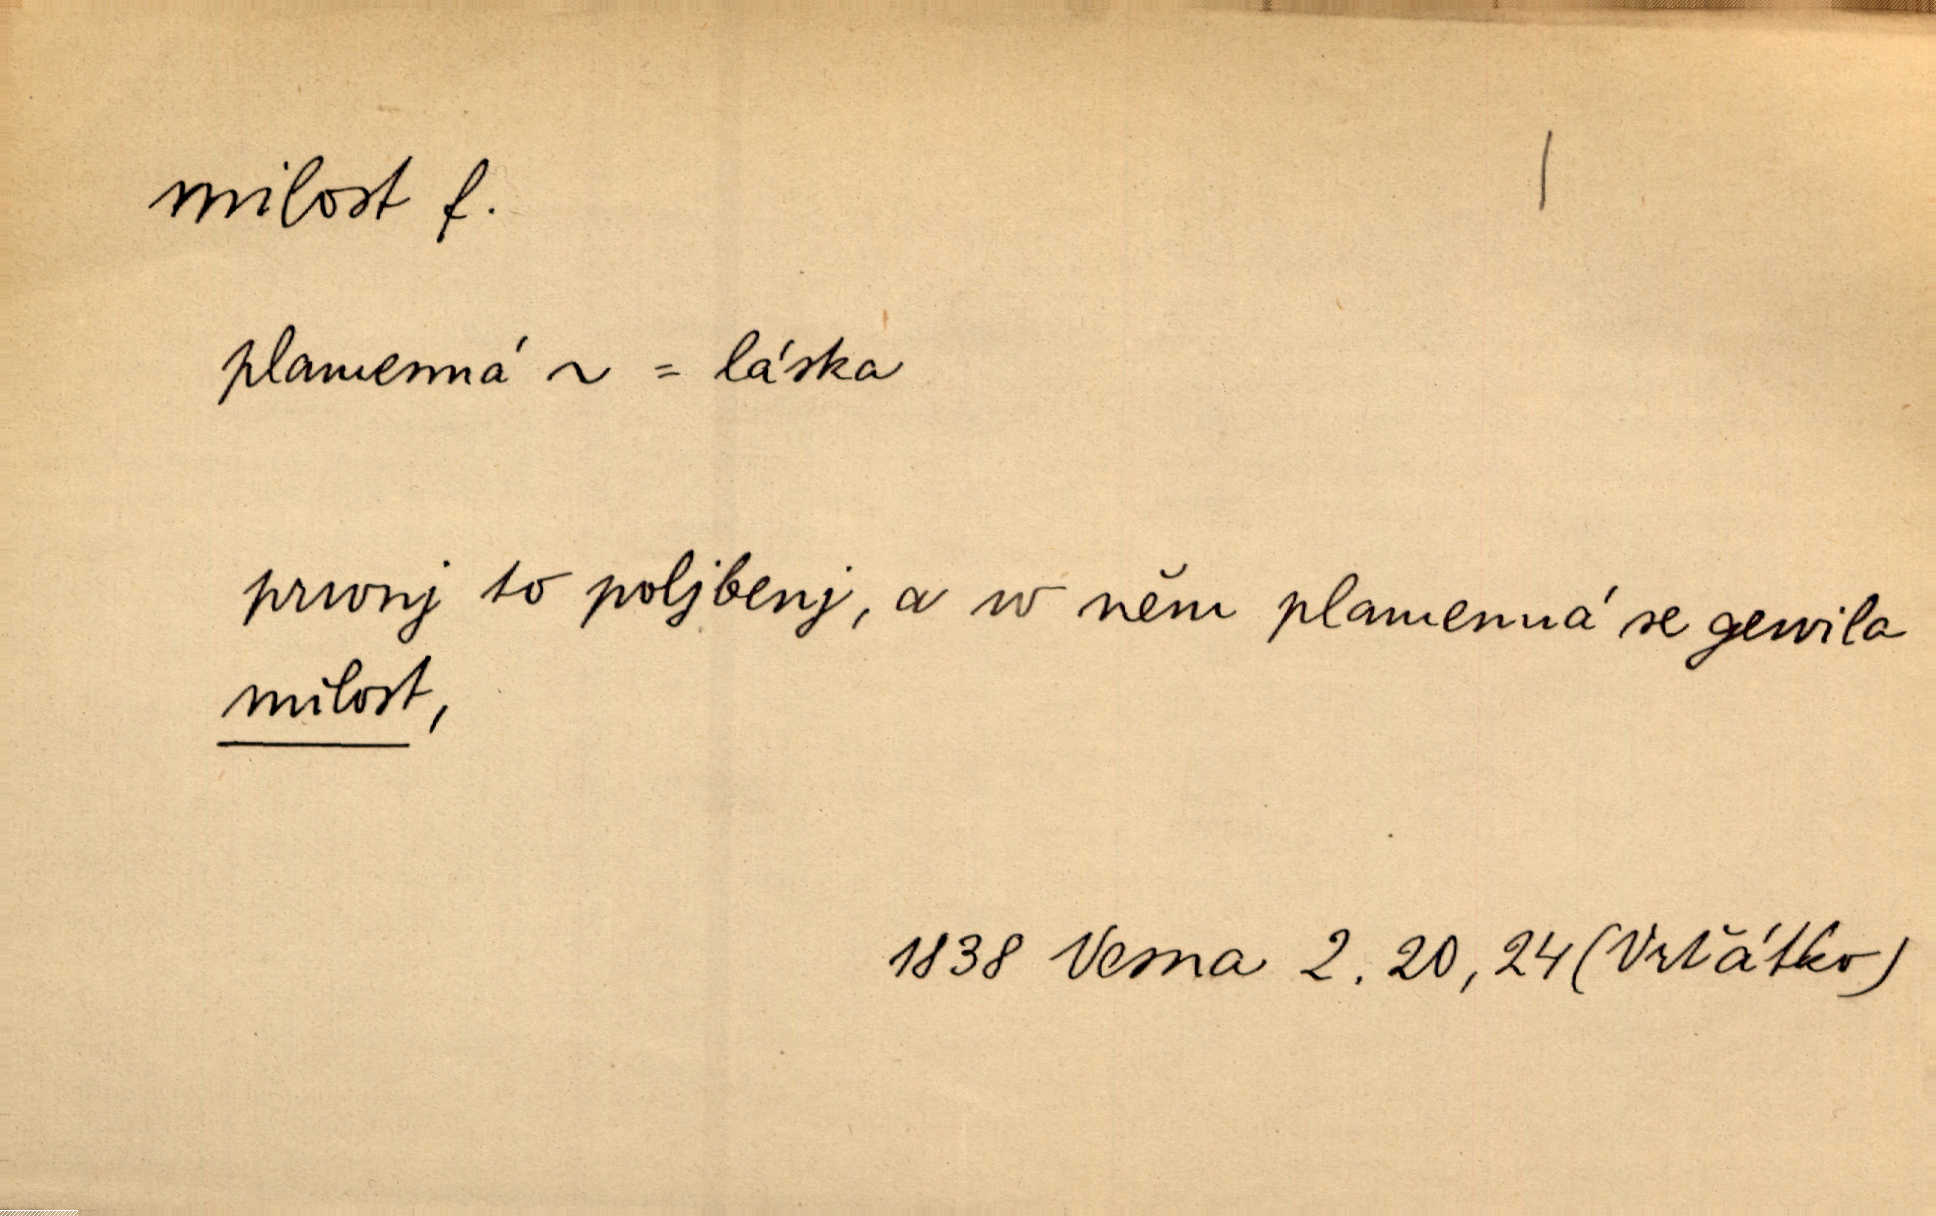 milost f.
plamenná ~ = láska
prwnj to poljbenj, a w něm plamenná se gewila
milost,
1838 Vesna 2. 20, 24 (Vrťátko)